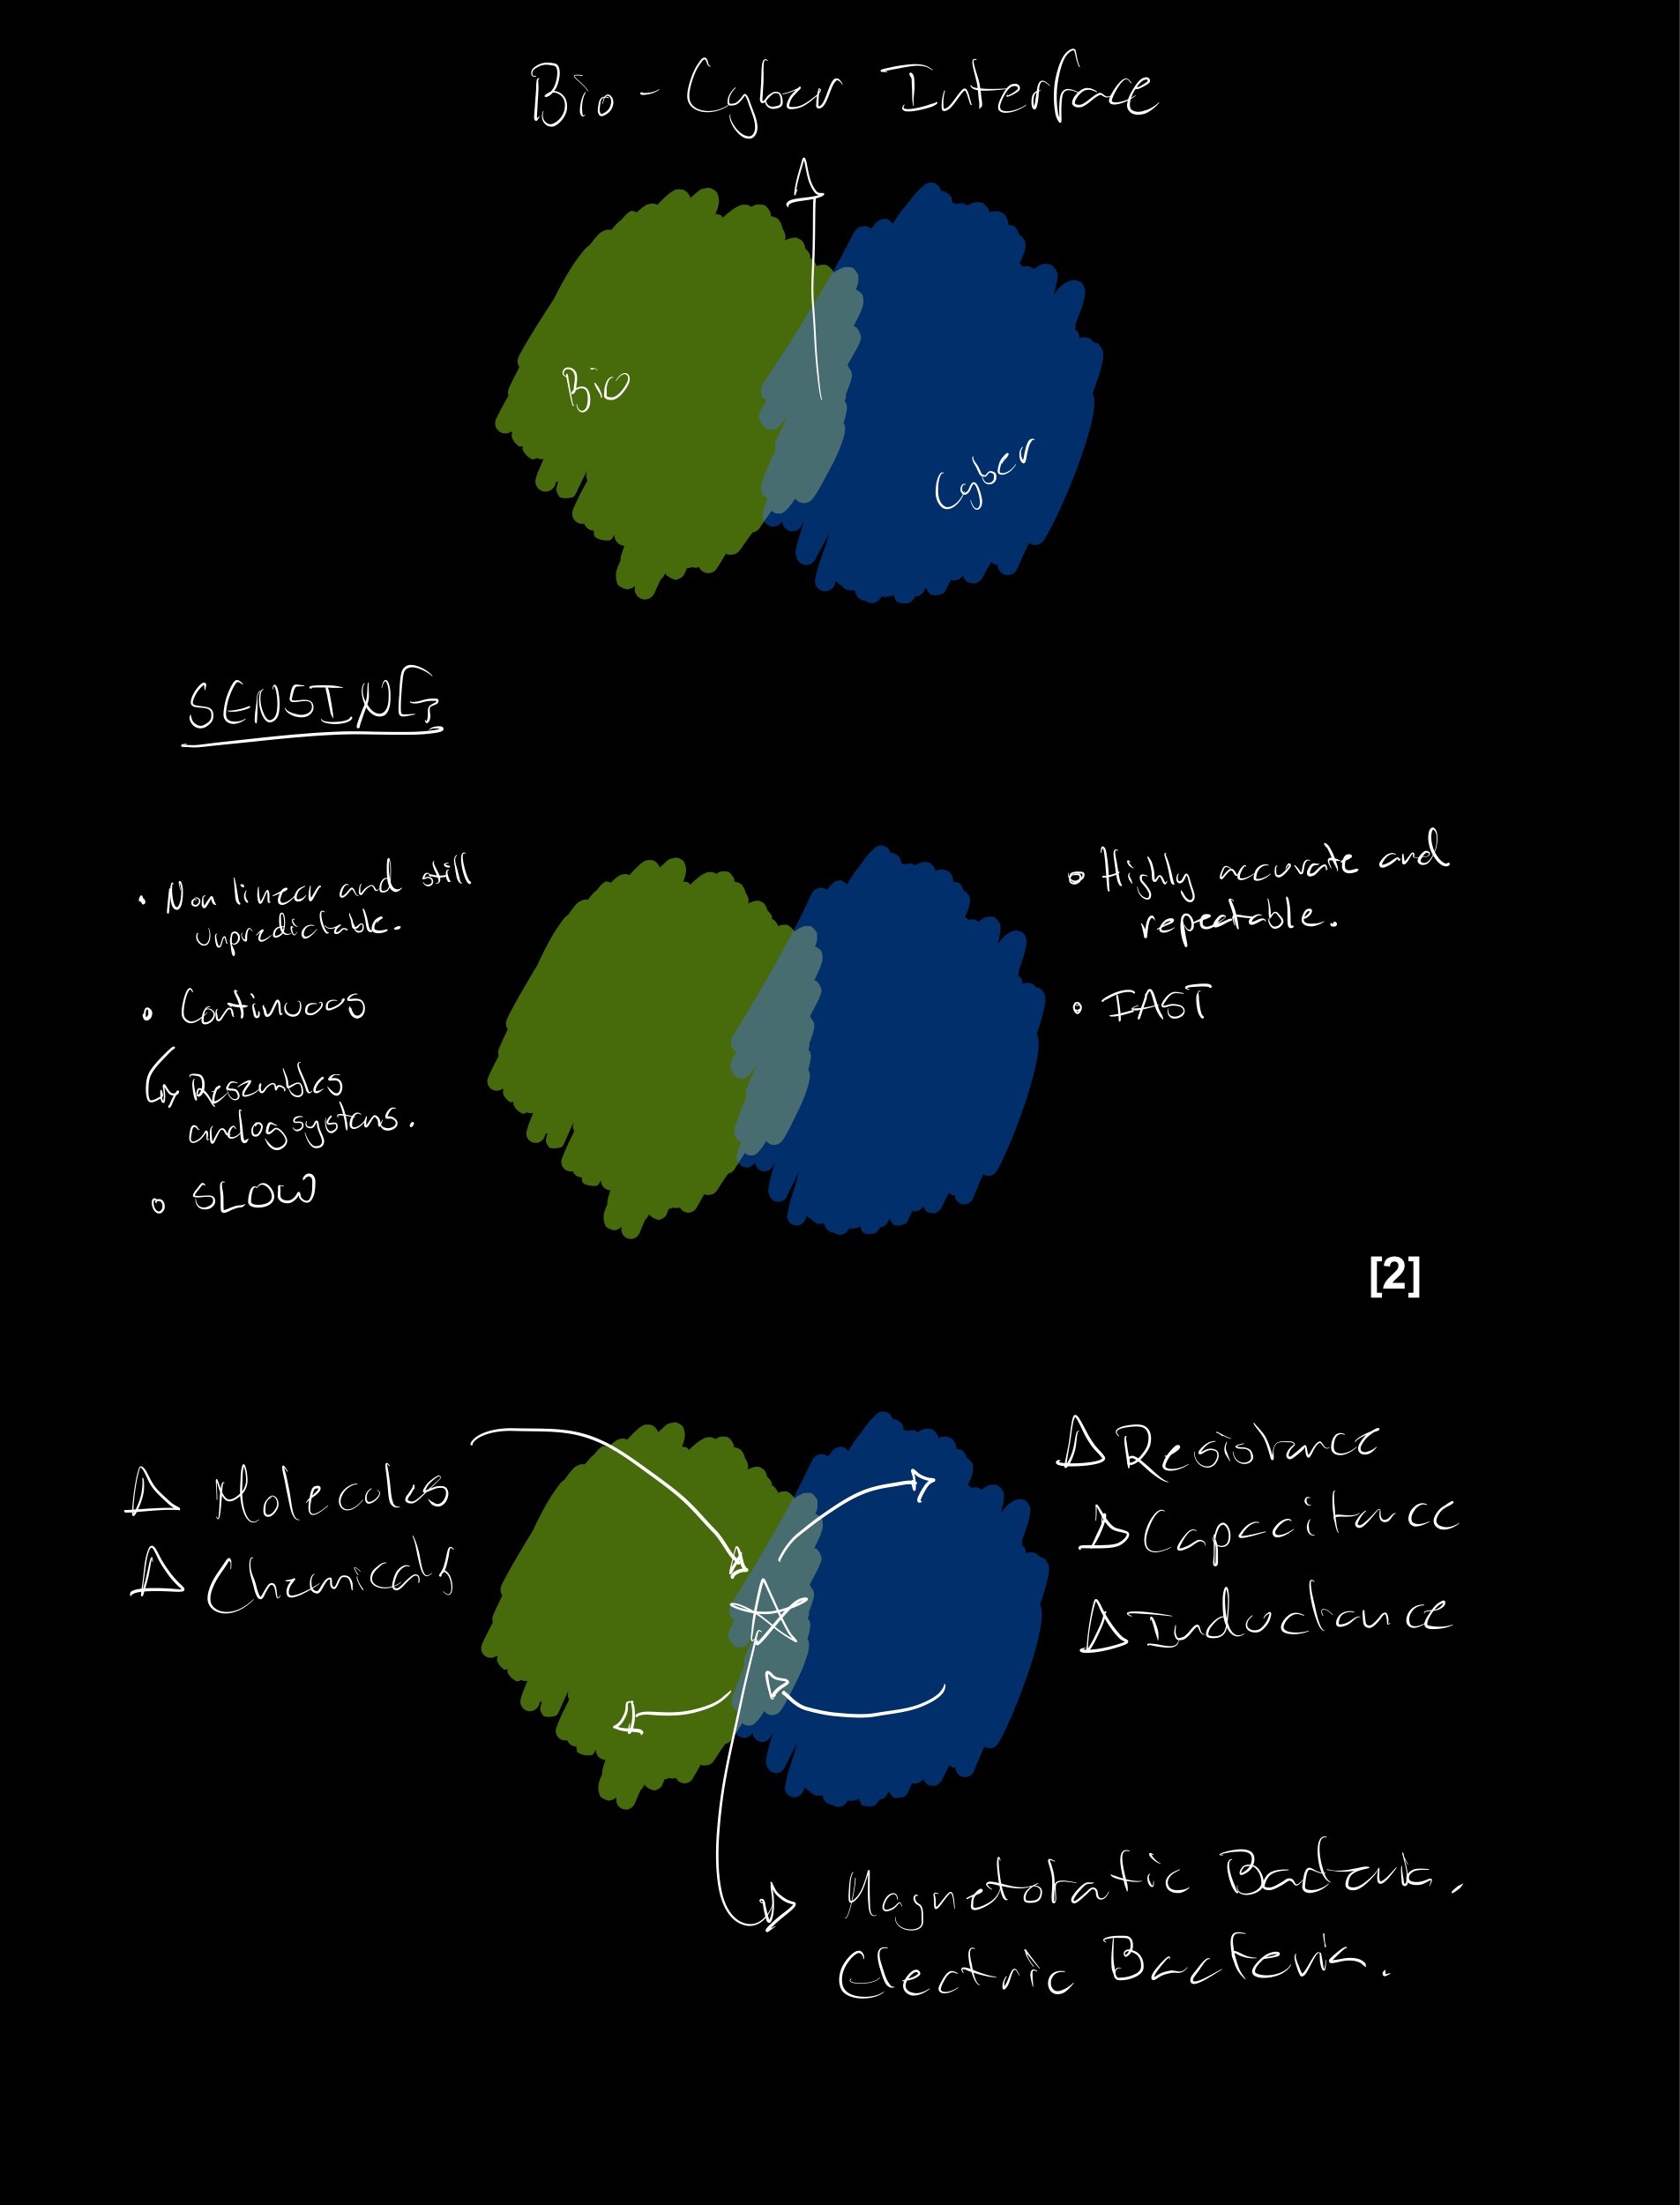 Bio - Cyber Interface
Bio
Cyber
SENSING
• Non linear and still
unpredictable.
• Continuous
↳ Resembles
analog systems.
• SLOW
• Highly accurate and
repeatable.
• FAST
[2]
Δ Molecules
Δ Chemicals
Δ Resistance
Δ Capacitance
Δ Inductance
Magnetotatic Bacteria.
Electric Bacteria.